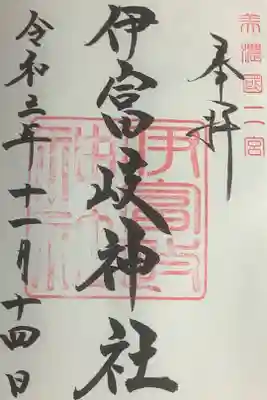 美濃國二宮
奉拝
伊富岐神社
伊富岐神社
令和三年十一月十四日